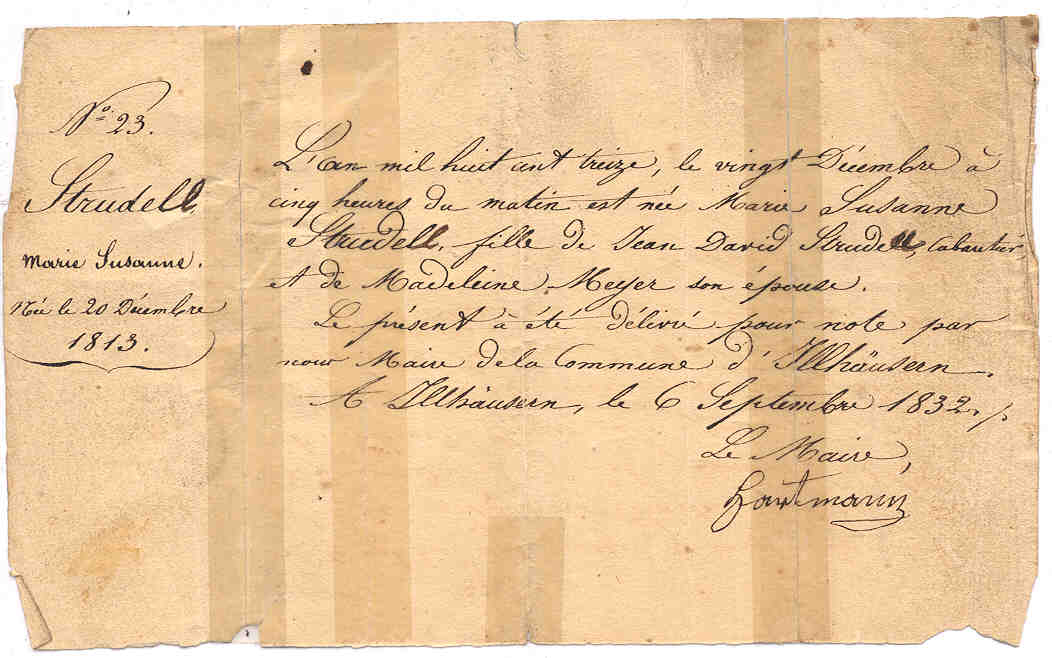 No. 23.
Strudell.
Marie Susanne.
Née le 20 Décembre
1813.
L'an mil huit cent treize, le vingt Décembre à
cinq heures du matin est née Marie Susanne
Strudell, fille de Jean David Strudell, Cabaretier
et de Madeleine Meyer son épouse.
Le présent à été délivré pour note par
nous Maire de la Commune d'Illhäusern.
A Illhäusern, le 6 Septembre 1832.
Le Maire,
Hartmann